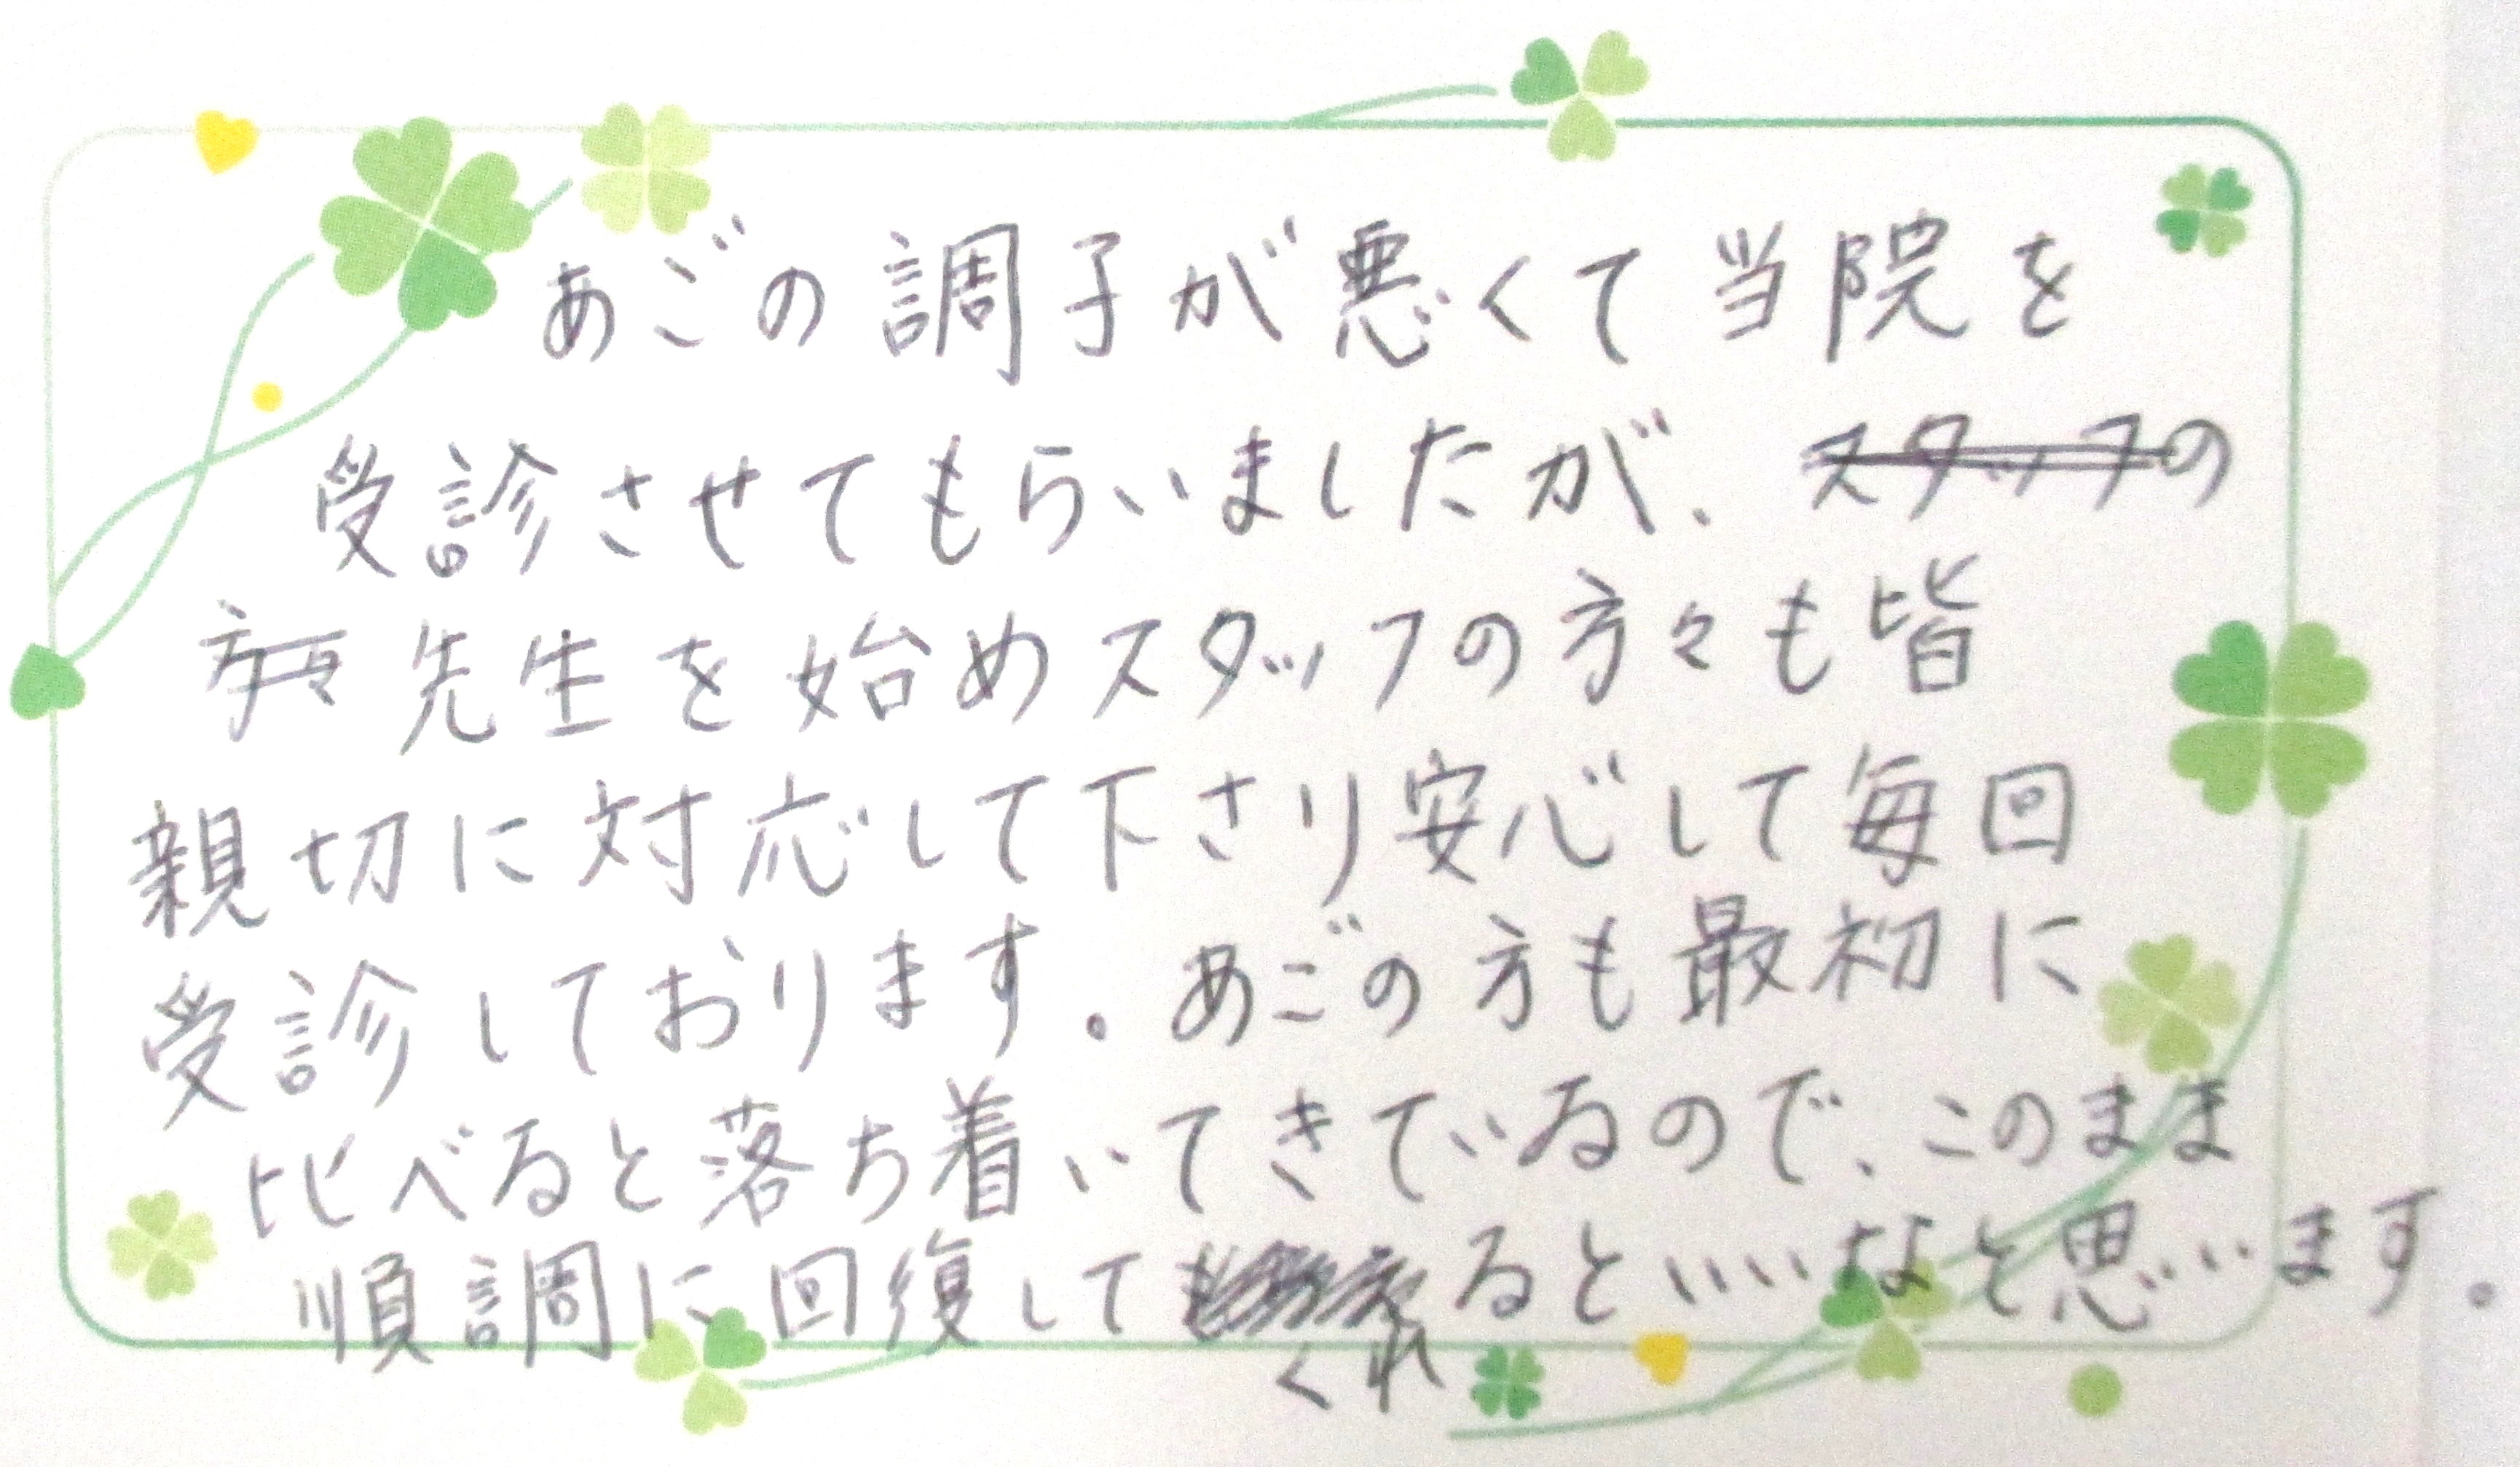 あごの調子が悪くて当院を
受診させてもらいましたが、スタッフの
方々先生を始めスタッフの方々も皆
親切に対応して下さり安心して毎回
受診しております。あごの方も最初に
比べると落ち着いてきているので、このまま
順調に回復してくれるといいなと思います。